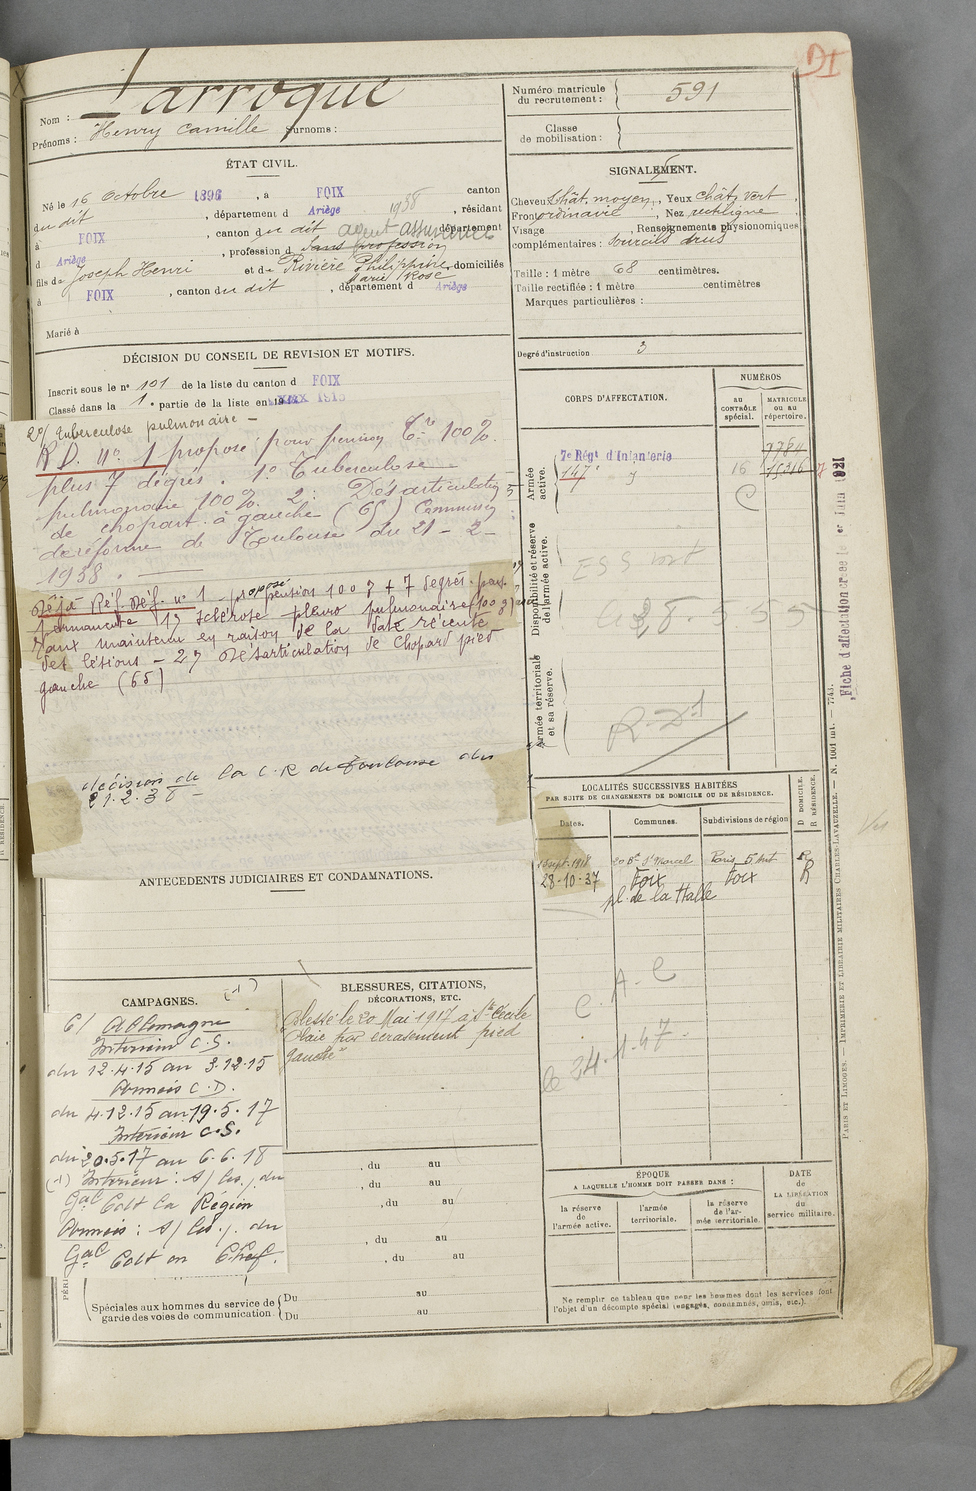 DI
Nom : Larroque
Prénoms : Henry Camille Surnoms :
Numéro matricule du recrutement : 591
Classe de mobilisation :
ÉTAT CIVIL.
Né le 16 Octobre 1896, à FOIX canton
du dit, département d Ariège 1938, résidant
à FOIX, canton du dit agent assurances département
d Ariège, profession d Sans profession
fils de Joseph Henri et de Rivière Philiphine Marie Rose, domiciliés
à FOIX, canton du dit, département d Ariège
Marié à
SIGNALEMENT.
Cheveux Chât. moyen, Yeux chât. vert
Front ordinaire, Nez rectiligne
Visage , Renseignements physionomiques
complémentaires : Sourcils drus
Taille : 1 mètre 68 centimètres.
Taille rectifiée : 1 mètre centimètres
Marques particulières :
Degré d'instruction 3
DÉCISION DU CONSEIL DE REVISION ET MOTIFS.
Inscrit sous le n° 101 de la liste du canton d FOIX
Classé dans la 1e partie de la liste en 1915
2°/ tuberculose pulmonaire -
R.D. n° 1 proposé pour pension 100%
plus 7 degrés. 1° Tuberculose
pulmonaire 100%. 2° Désarticulation
de chopart à gauche (65) Commission
de réforme de Toulouse du 21-2-
1938.
Déjà Réf. Déf. n° 1 - proposé pension 100% + 7 degrés
permanente 1°) sclérose pleuro pulmonaire (100%)
taux maintenu en raison de la date récente
des lésions - 2°) Désarticulation de Chopard pied
gauche (65)
décision de la C.R de Toulouse du
21.2.38 -
CORPS D'AFFECTATION.
NUMÉROS
AU CONTRÔLE SPÉCIAL.
MATRICULE OU AU RÉPERTOIRE.
Armée active.
7e Régt d'Infanterie 7784
147e d° 16 15216
C
Disponibilité et réserve de l'armée active.
Armée territoriale et sa réserve.
R.D.1
Fiche d'affectation créée le 1er Juin 1921
LOCALITÉS SUCCESSIVES HABITÉES
PAR SUITE DE CHANGEMENTS DE DOMICILE OU DE RÉSIDENCE.
Dates. Communes. Subdivisions de région D DOMICILE. R RÉSIDENCE.
sept. 1918 20 Bd St Marcel Paris 5 Art R
28-10-37 Foix Foix R
pl. de la Halle
C.A.C
le 24.1.47.
ANTÉCÉDENTS JUDICIAIRES ET CONDAMNATIONS.
CAMPAGNES. (-1)
C/ Allemagne
Intérieur C.S.
du 12.4.15 au 3.12.15
Armées C.D.
du 4.12.15 au 19.5.17
Intérieur C.S.
du 20.5.17 au 6.6.18
(-1) Intérieur : du
Gal Cdt la Région
Armées : du
Gal Cdt en Chef.
BLESSURES, CITATIONS,
DÉCORATIONS, ETC.
Blessé le 20 Mai 1917 à Ste Cécile
Plaie par écrasement pied
gauche
, du au
, du au
, du au
, du au
, du au
Spéciales aux hommes du service de garde des voies de communication.
Du au
Du au
ÉPOQUE
A LAQUELLE L'HOMME DOIT PASSER DANS :
la réserve de l'armée active.
l'armée territoriale.
la réserve de l'armée territoriale.
DATE de LA LIBÉRATION du service militaire.
Ne remplir ce tableau que pour les hommes dont les services font
l'objet d'un décompte spécial (engagés, condamnés, omis, etc.).
PARIS ET LIMOGES. — IMPRIMERIE ET LIBRAIRIE MILITAIRES CHARLES-LAVAUZELLE. — N. 1001 int. — 7743.